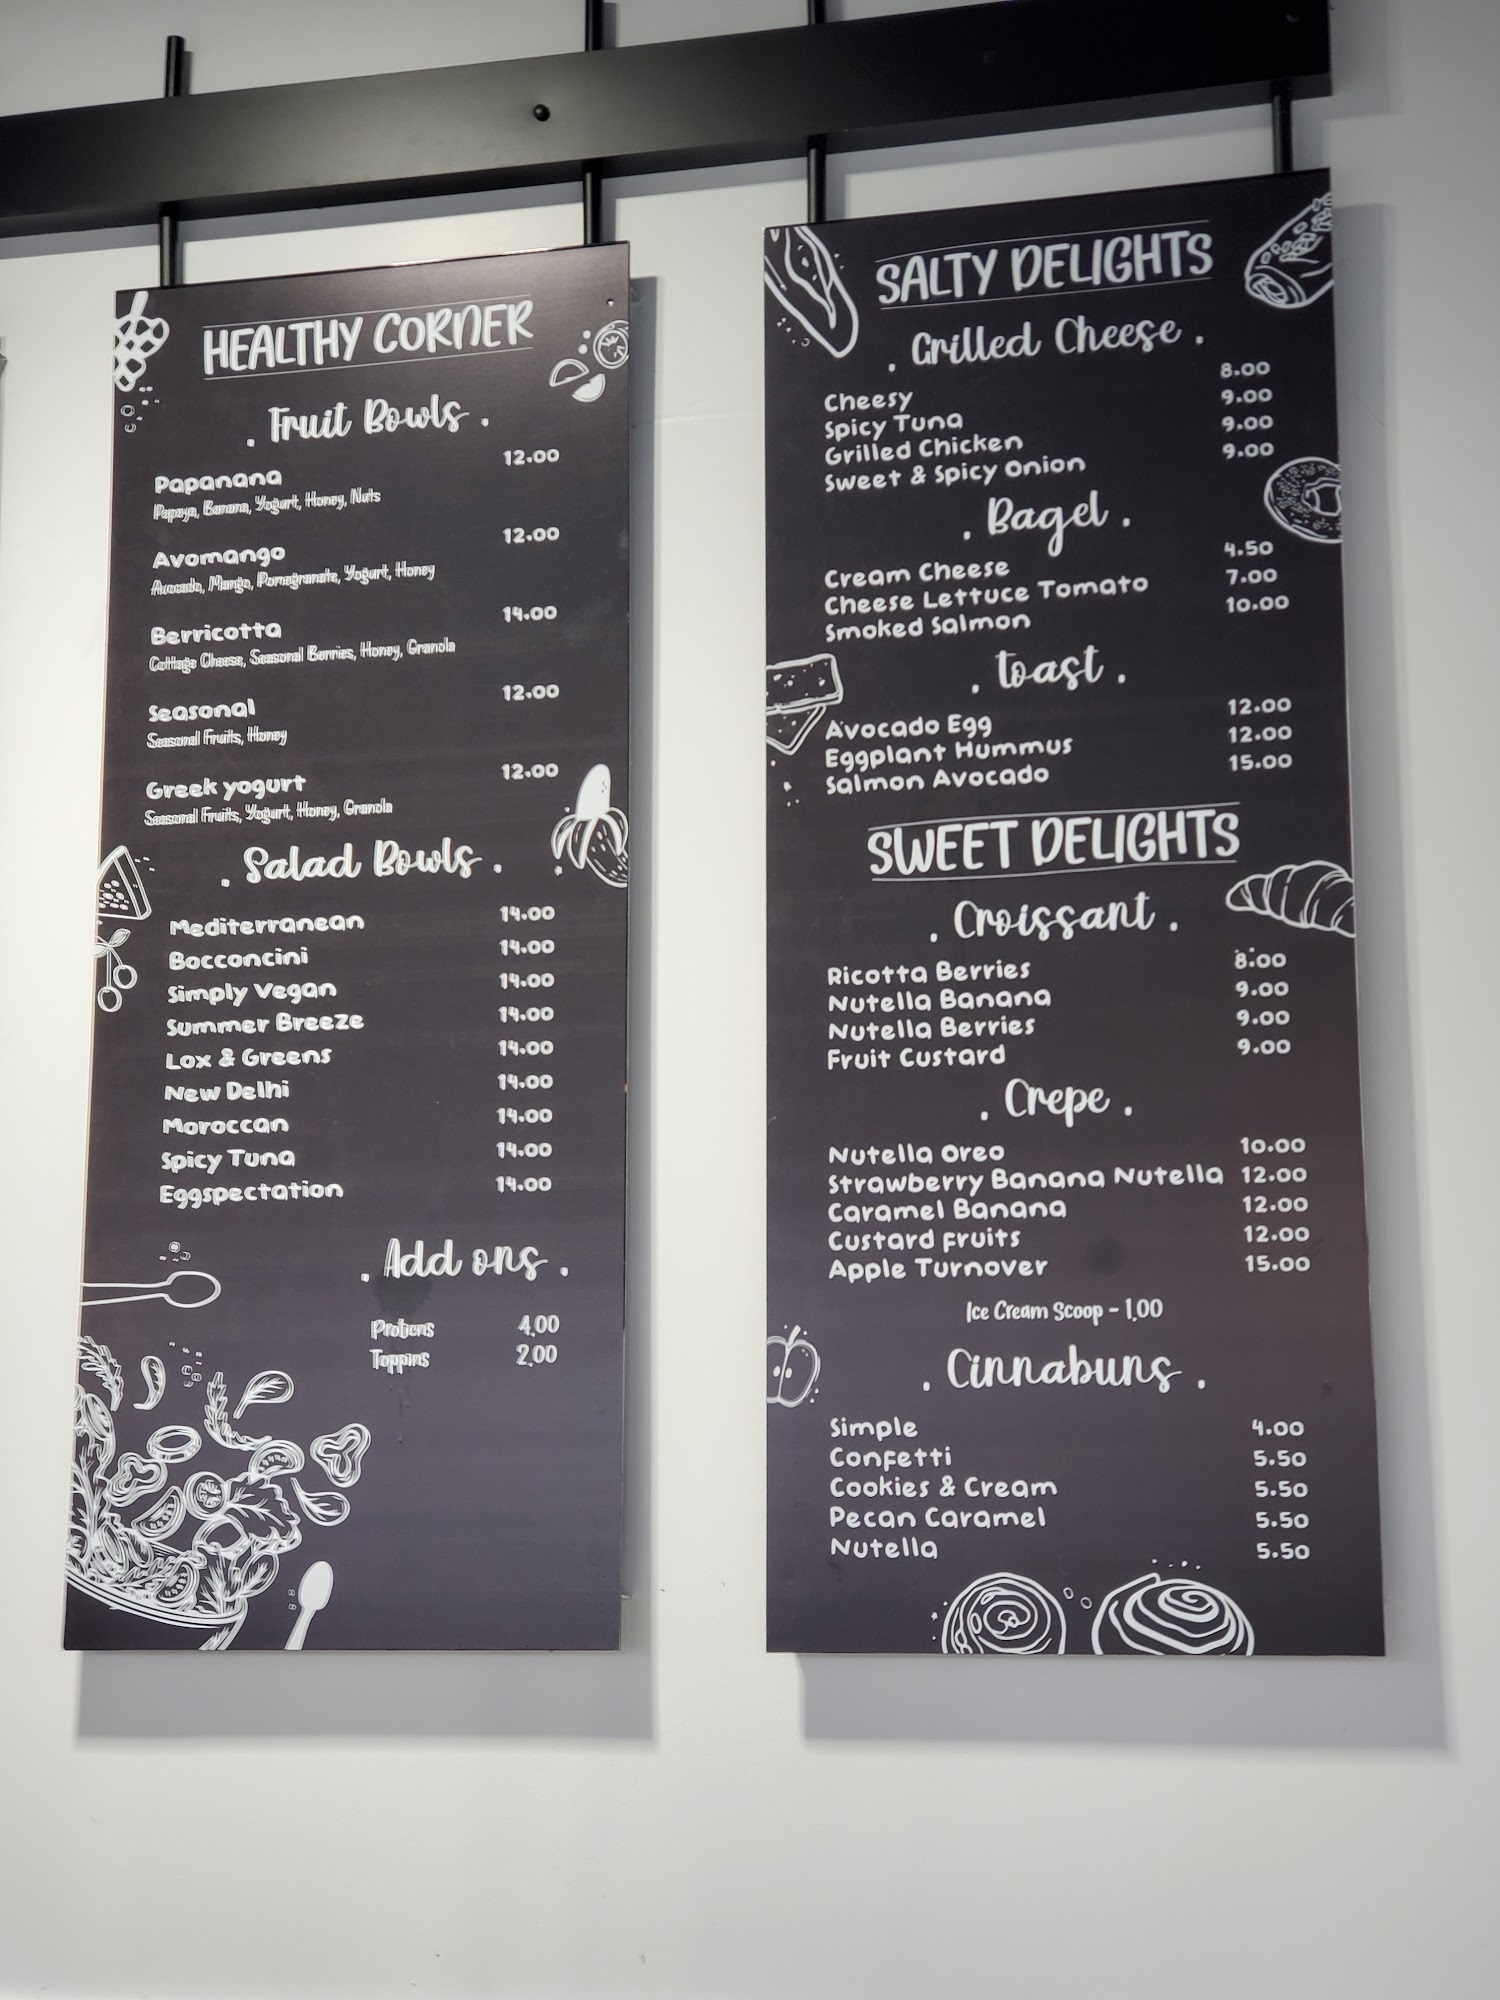 HEALTHY CORNER
. Fruit Bowls .
Papanana 12.00
Papaya, Banana, Yogurt, Honey, Nuts
Avomango 12.00
Avocado, Mango, Pomegranate, Yogurt, Honey
Berricotta 14.00
Cottage Cheese, Seasonal Berries, Honey, Granola
Seasonal 12.00
Seasonal Fruits, Honey
Greek yogurt 12.00
Seasonal Fruits, Yogurt, Honey, Granola
. Salad Bowls .
Mediterranean 14.00
Bocconcini 14.00
Simply Vegan 14.00
Summer Breeze 14.00
Lox & Greens 14.00
New Delhi 14.00
Moroccan 14.00
Spicy Tuna 14.00
Eggspectation 14.00
. Add ons .
Protiens 4.00
Toppins 2.00
SALTY DELIGHTS
. Grilled Cheese .
Cheesy 8.00
Spicy Tuna 9.00
Grilled Chicken 9.00
Sweet & Spicy Onion 9.00
. Bagel .
Cream Cheese 4.50
Cheese Lettuce Tomato 7.00
Smoked Salmon 10.00
. toast .
Avocado Egg 12.00
Eggplant Hummus 12.00
Salmon Avocado 15.00
SWEET DELIGHTS
. Croissant .
Ricotta Berries 8.00
Nutella Banana 9.00
Nutella Berries 9.00
Fruit Custard 9.00
. Crepe .
Nutella Oreo 10.00
Strawberry Banana Nutella 12.00
Caramel Banana 12.00
Custard Fruits 12.00
Apple Turnover 15.00
Ice Cream Scoop - 1.00
. Cinnabuns .
Simple 4.00
Confetti 5.50
Cookies & Cream 5.50
Pecan Caramel 5.50
Nutella 5.50